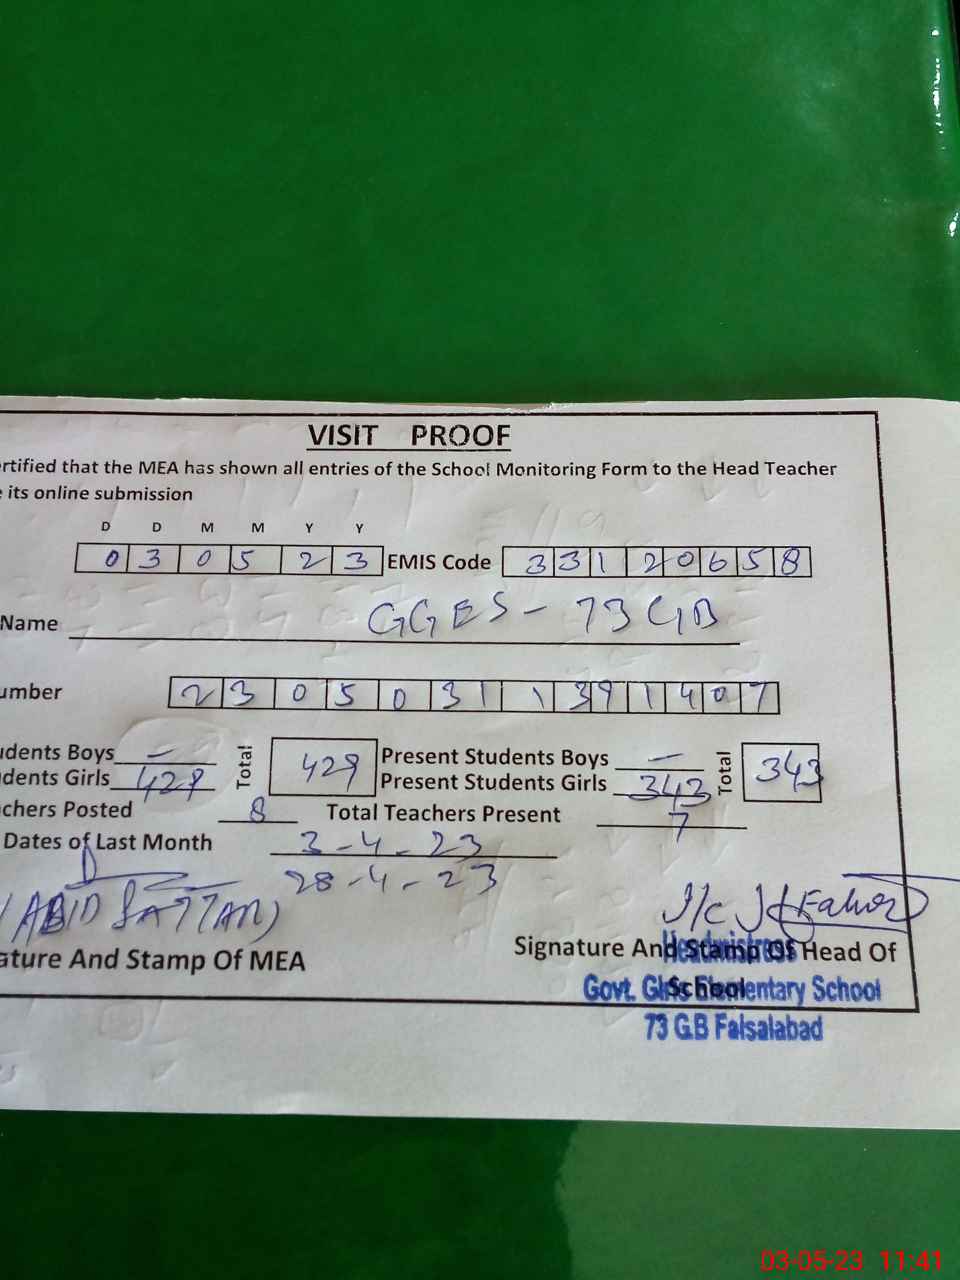 VISIT PROOF
rtified that the MEA has shown all entries of the School Monitoring Form to the Head Teacher
its online submission
D D M M Y Y
0 3 0 5 2 3 EMIS Code 3 3 1 2 0 6 5 8
Name GGES - 73 GB
umber 2 3 0 5 0 3 1 1 3 9 1 4 0 7
udents Boys — Total 429 Present Students Boys — Total 343
dents Girls 429 Present Students Girls 343
chers Posted 8 Total Teachers Present 7
Dates of Last Month 3-4-23
28-4-23
(ABID SATTAR) I/c
ature And Stamp Of MEA Signature And Stamp Of Head Of
School
Headmistress
Govt. Girls Elementary School
73 G.B Faisalabad
03-05-23 11:41